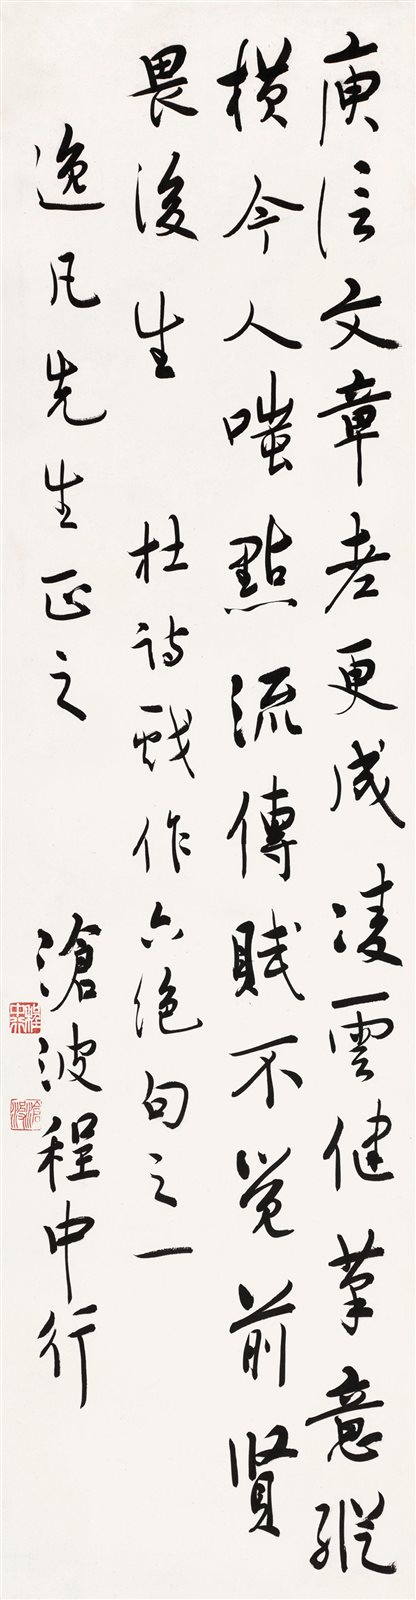 庾信文章老更成凌雲健筆意縱
橫今人嗤點流傳賦不覺前賢
畏後生 杜詩戲作六絕句之一
逸凡先生正之 滄波程中行